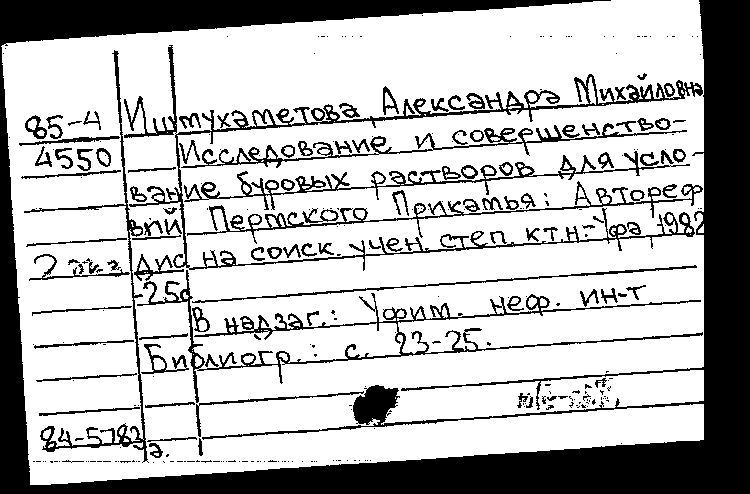 85-4 Ишмухаметова, Александра Михайловна
4550 Исследование и совершенство-
вание буровых растворов для усло-
вий Пермского Прикамья: Автореф
2 экз дис на соиск. учен. степ. к.т.н.-Уфа, 1982
-25с
В надзаг.: Уфим. неф. ин-т
Библиогр.: с. 23-25.
84-5783а.